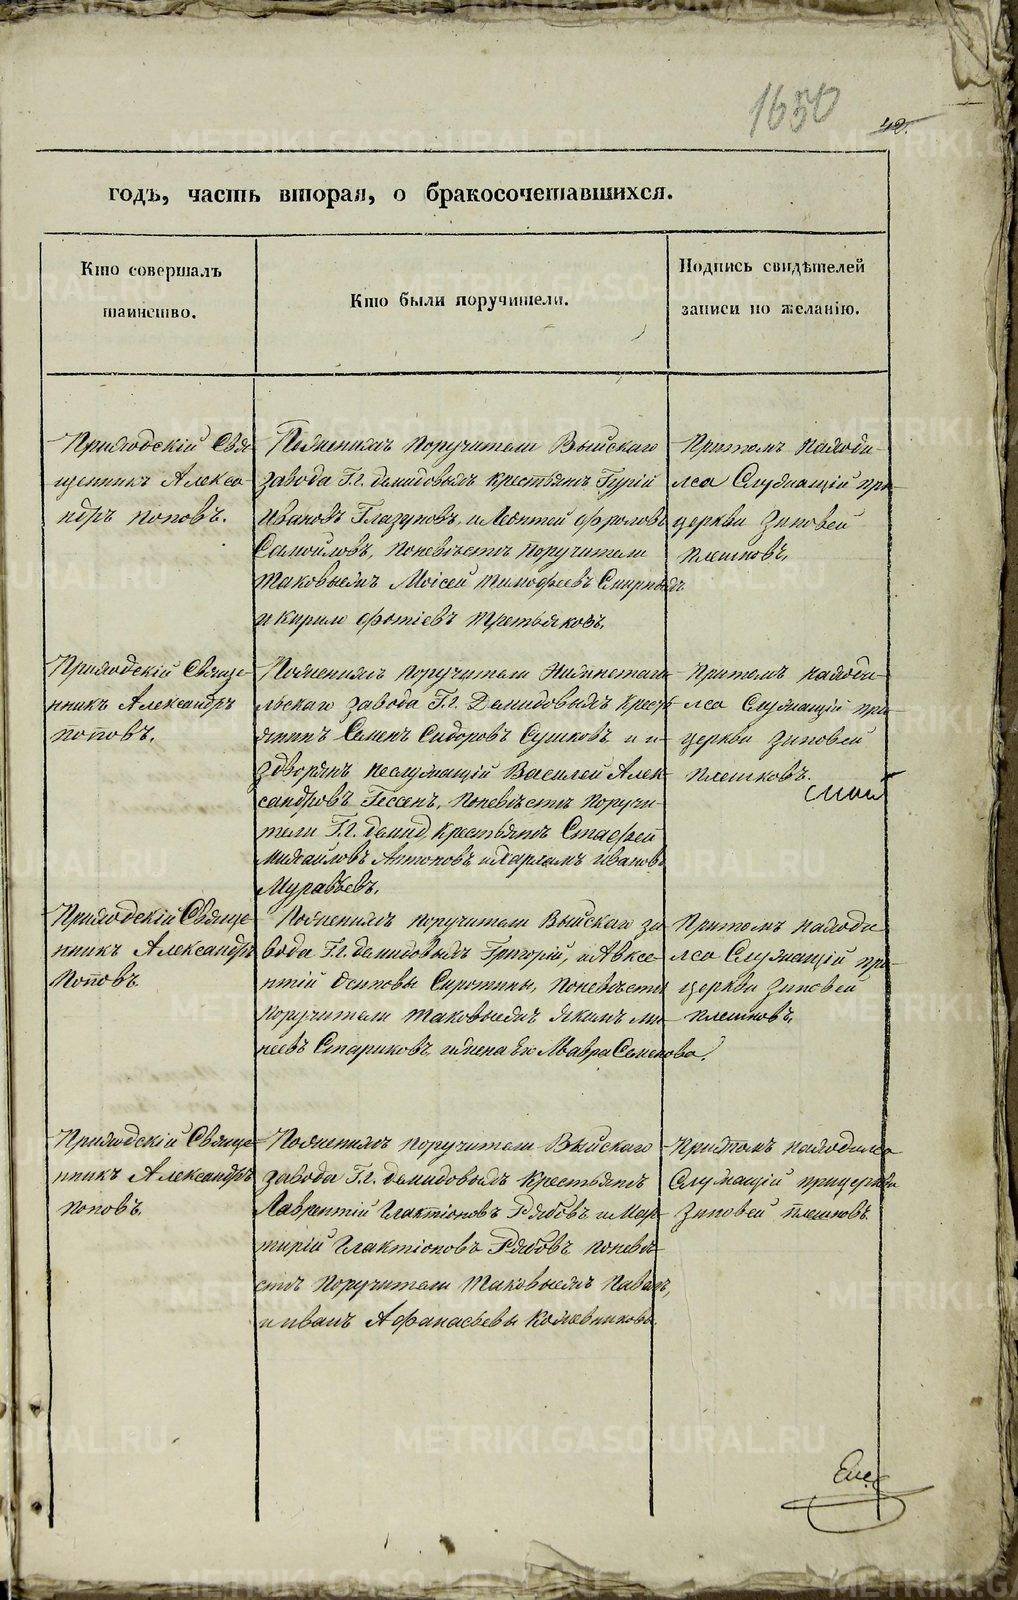 1650
42.
годъ, часть вторая, о бракосочетавшихся.
Кто совершалъ
таинство.
Кто были поручители.
Подпись свидѣтелей
записи по желанію.
Приходскій Свя-
щенникъ Алекса-
ндръ Поповъ.
Пожениxъ поручители Выйскаго
завода Г.г. Демидовыхъ крестьянъ Гурій
Ивановъ Глазуновъ, и Леонтей Фроловъ
Самойловъ, Поневѣстѣ поручители
таковыежъ Моісей Тимофеевъ
и Кирило Фотіевъ Третьяковъ.
Притомъ находи-
лса Служащій при
церкви Зиновей
Плешковъ,
Приходскій Свяще-
нникъ Александръ
Поповъ.
Поженихъ поручители Нижнетаги-
льскаго завода Г.г. Демидовыхъ Кресть-
янинъ Семенъ Сидоровъ Сушковъ и и-
здворянъ неслужащій Василей Алек-
сандровъ Гессенъ, Поневѣстѣ Поручи-
тели Г.г. Демид. Крестьянъ Стафей
Михайловъ Антоновъ и Харламъ Ивановъ
Муравьевъ.
Притомъ находи-
лса Служащій при
церкви Зиновей
Плешковъ.
Приходскій Свяще-
нникъ Александръ
Поповъ
Поженихъ поручители Выйскаго за-
вода Г.г. Демидовыхъ Григорій, и Авксе-
нтій Осиповы Сиротины, Поневѣстѣ
поручители таковыежъ Якимъ Ми-
неевъ Стариковъ, и жена Его Мавра Семенова.
Притомъ находи
лса Служащій при-
церкви Зиновей
Плешковъ,
Приходскій Свяще-
нникъ Александръ
Поповъ.
Поженихъ поручители Выйскаго
завода Г.г. Демидовыхъ Крестьянъ
Лаврентій Галактіоновъ Рябовъ и Мар-
тирій Галактіоновъ Рябовъ поневѣ-
стѣ Поручители таковыежъ Павелъ,
и Иванъ Афанасьевы Кожевниковы.
Притомъ находилса
Служащій прицеркви
Зиновей Плешковъ
METRIKI.GASO-URAL.RU